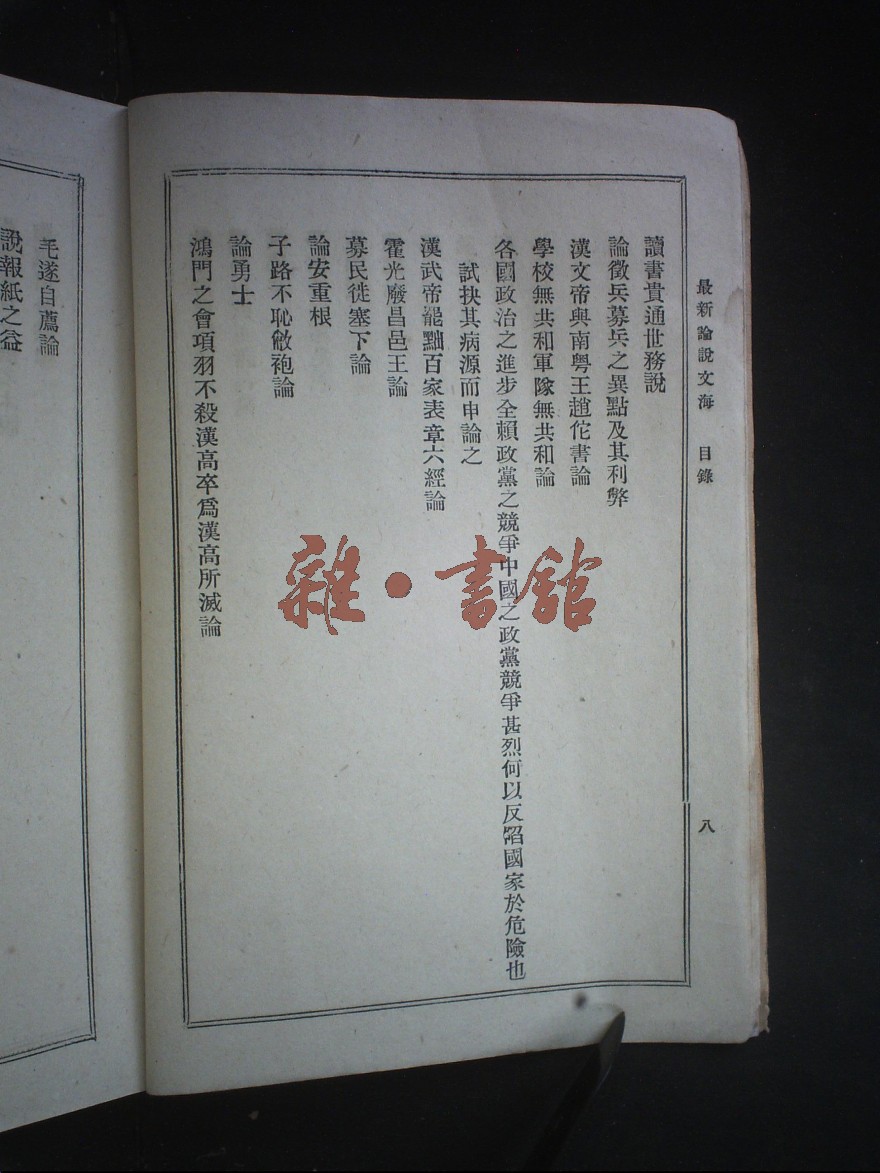 最新論說文海　目錄
八
讀書貴通世務說
論徵兵募兵之異點及其利弊
漢文帝與南粵王趙佗書論
學校無共和軍隊無共和論
各國政治之進步全賴政黨之競爭中國之政黨競爭甚烈何以反陷國家於危險也
試抉其病源而申論之
漢武帝罷黜百家表章六經論
霍光廢昌邑王論
募民徙塞下論
論安重根
子路不恥敝袍論
論勇士
鴻門之會項羽不殺漢高卒爲漢高所滅論
毛遂自薦論
說報紙之益
雜·書館